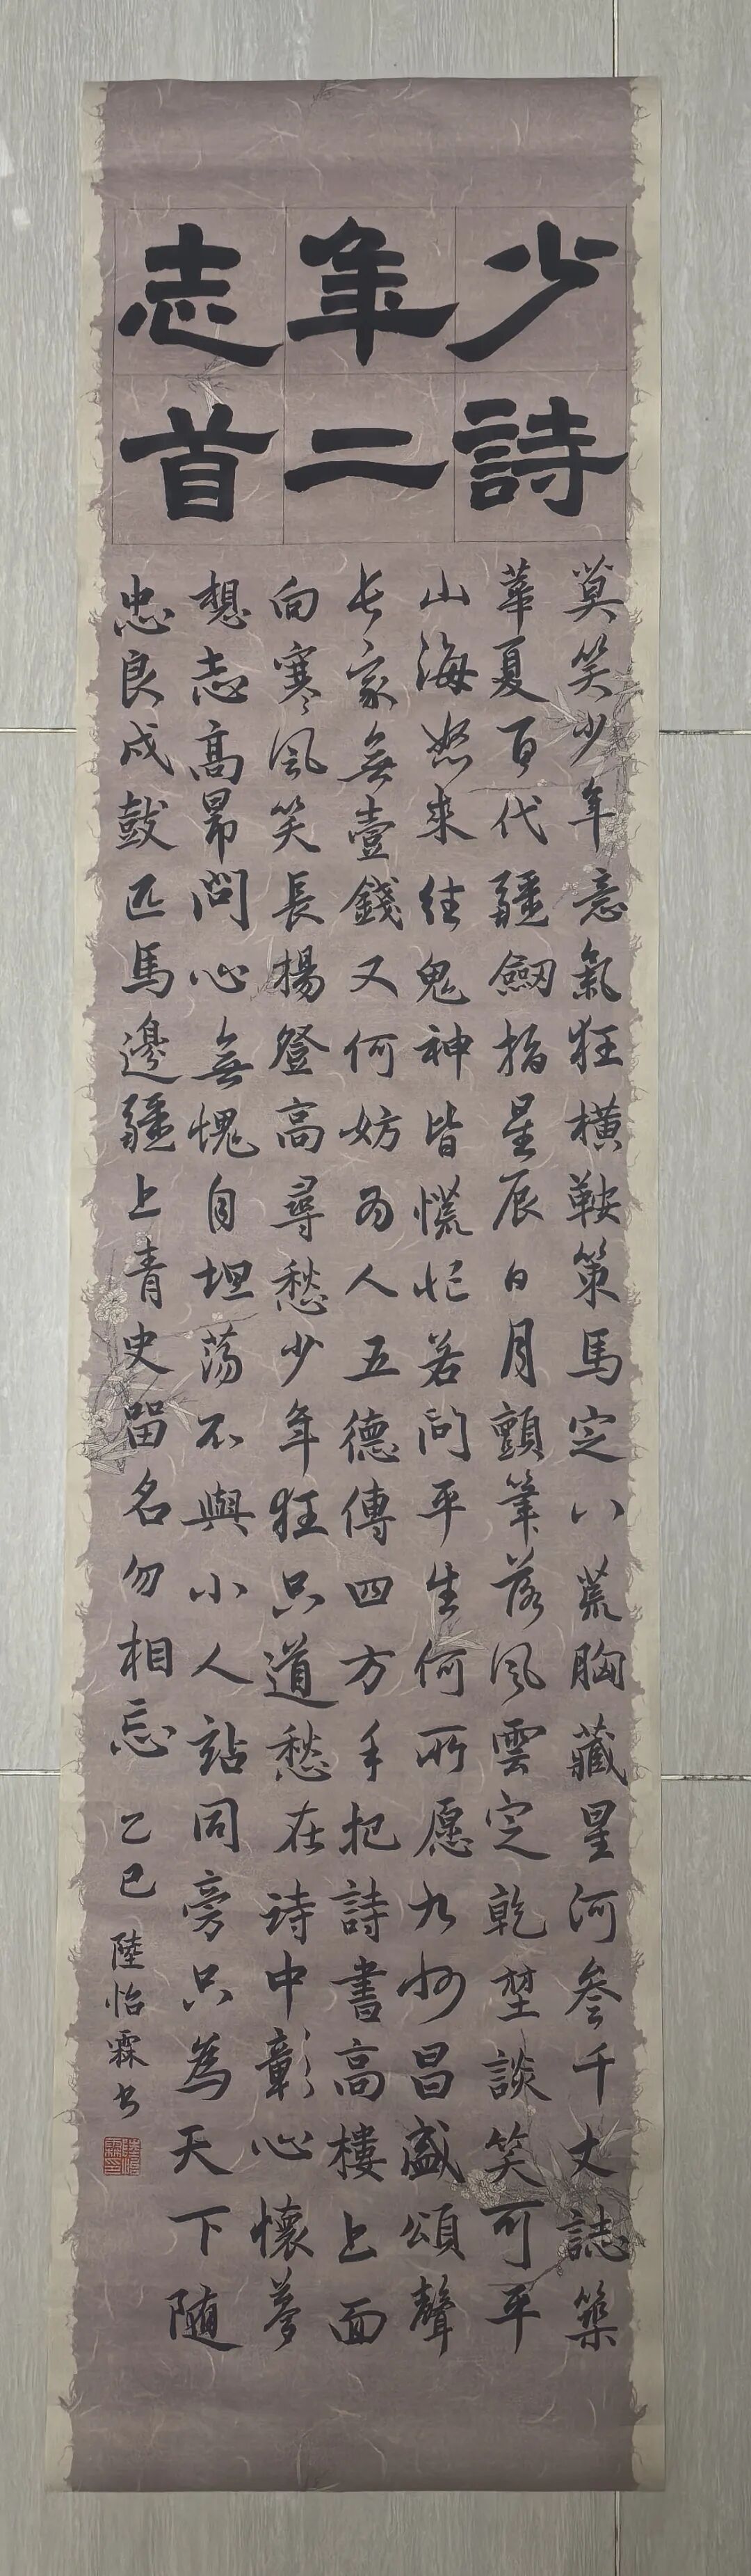 少年志
詩二首
莫笑少年意氣狂橫鞍策馬定八荒胸藏星河叁千丈誌築
華夏百代疆劒指星辰日月顫筆落風雲定乾埜談笑可平
山海怒來往鬼神皆慌忙若问平生何所愿九州昌盛頌聲
长家無壹錢又何妨为人五德傳四方手把詩書高樓上面
向寒風笑長楊登高尋愁少年狂只道愁在诗中彰心懷夢
想志高昴問心無愧自坦荡不與小人站同旁只為天下随
忠良成鼓匹馬邊疆上青史留名勿相忘
乙巳
陸怡霖书